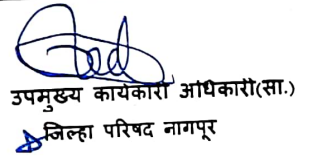 उपमुख्य कार्यकारी अधिकारी(सा.)
जिल्हा परिषद नागपूर